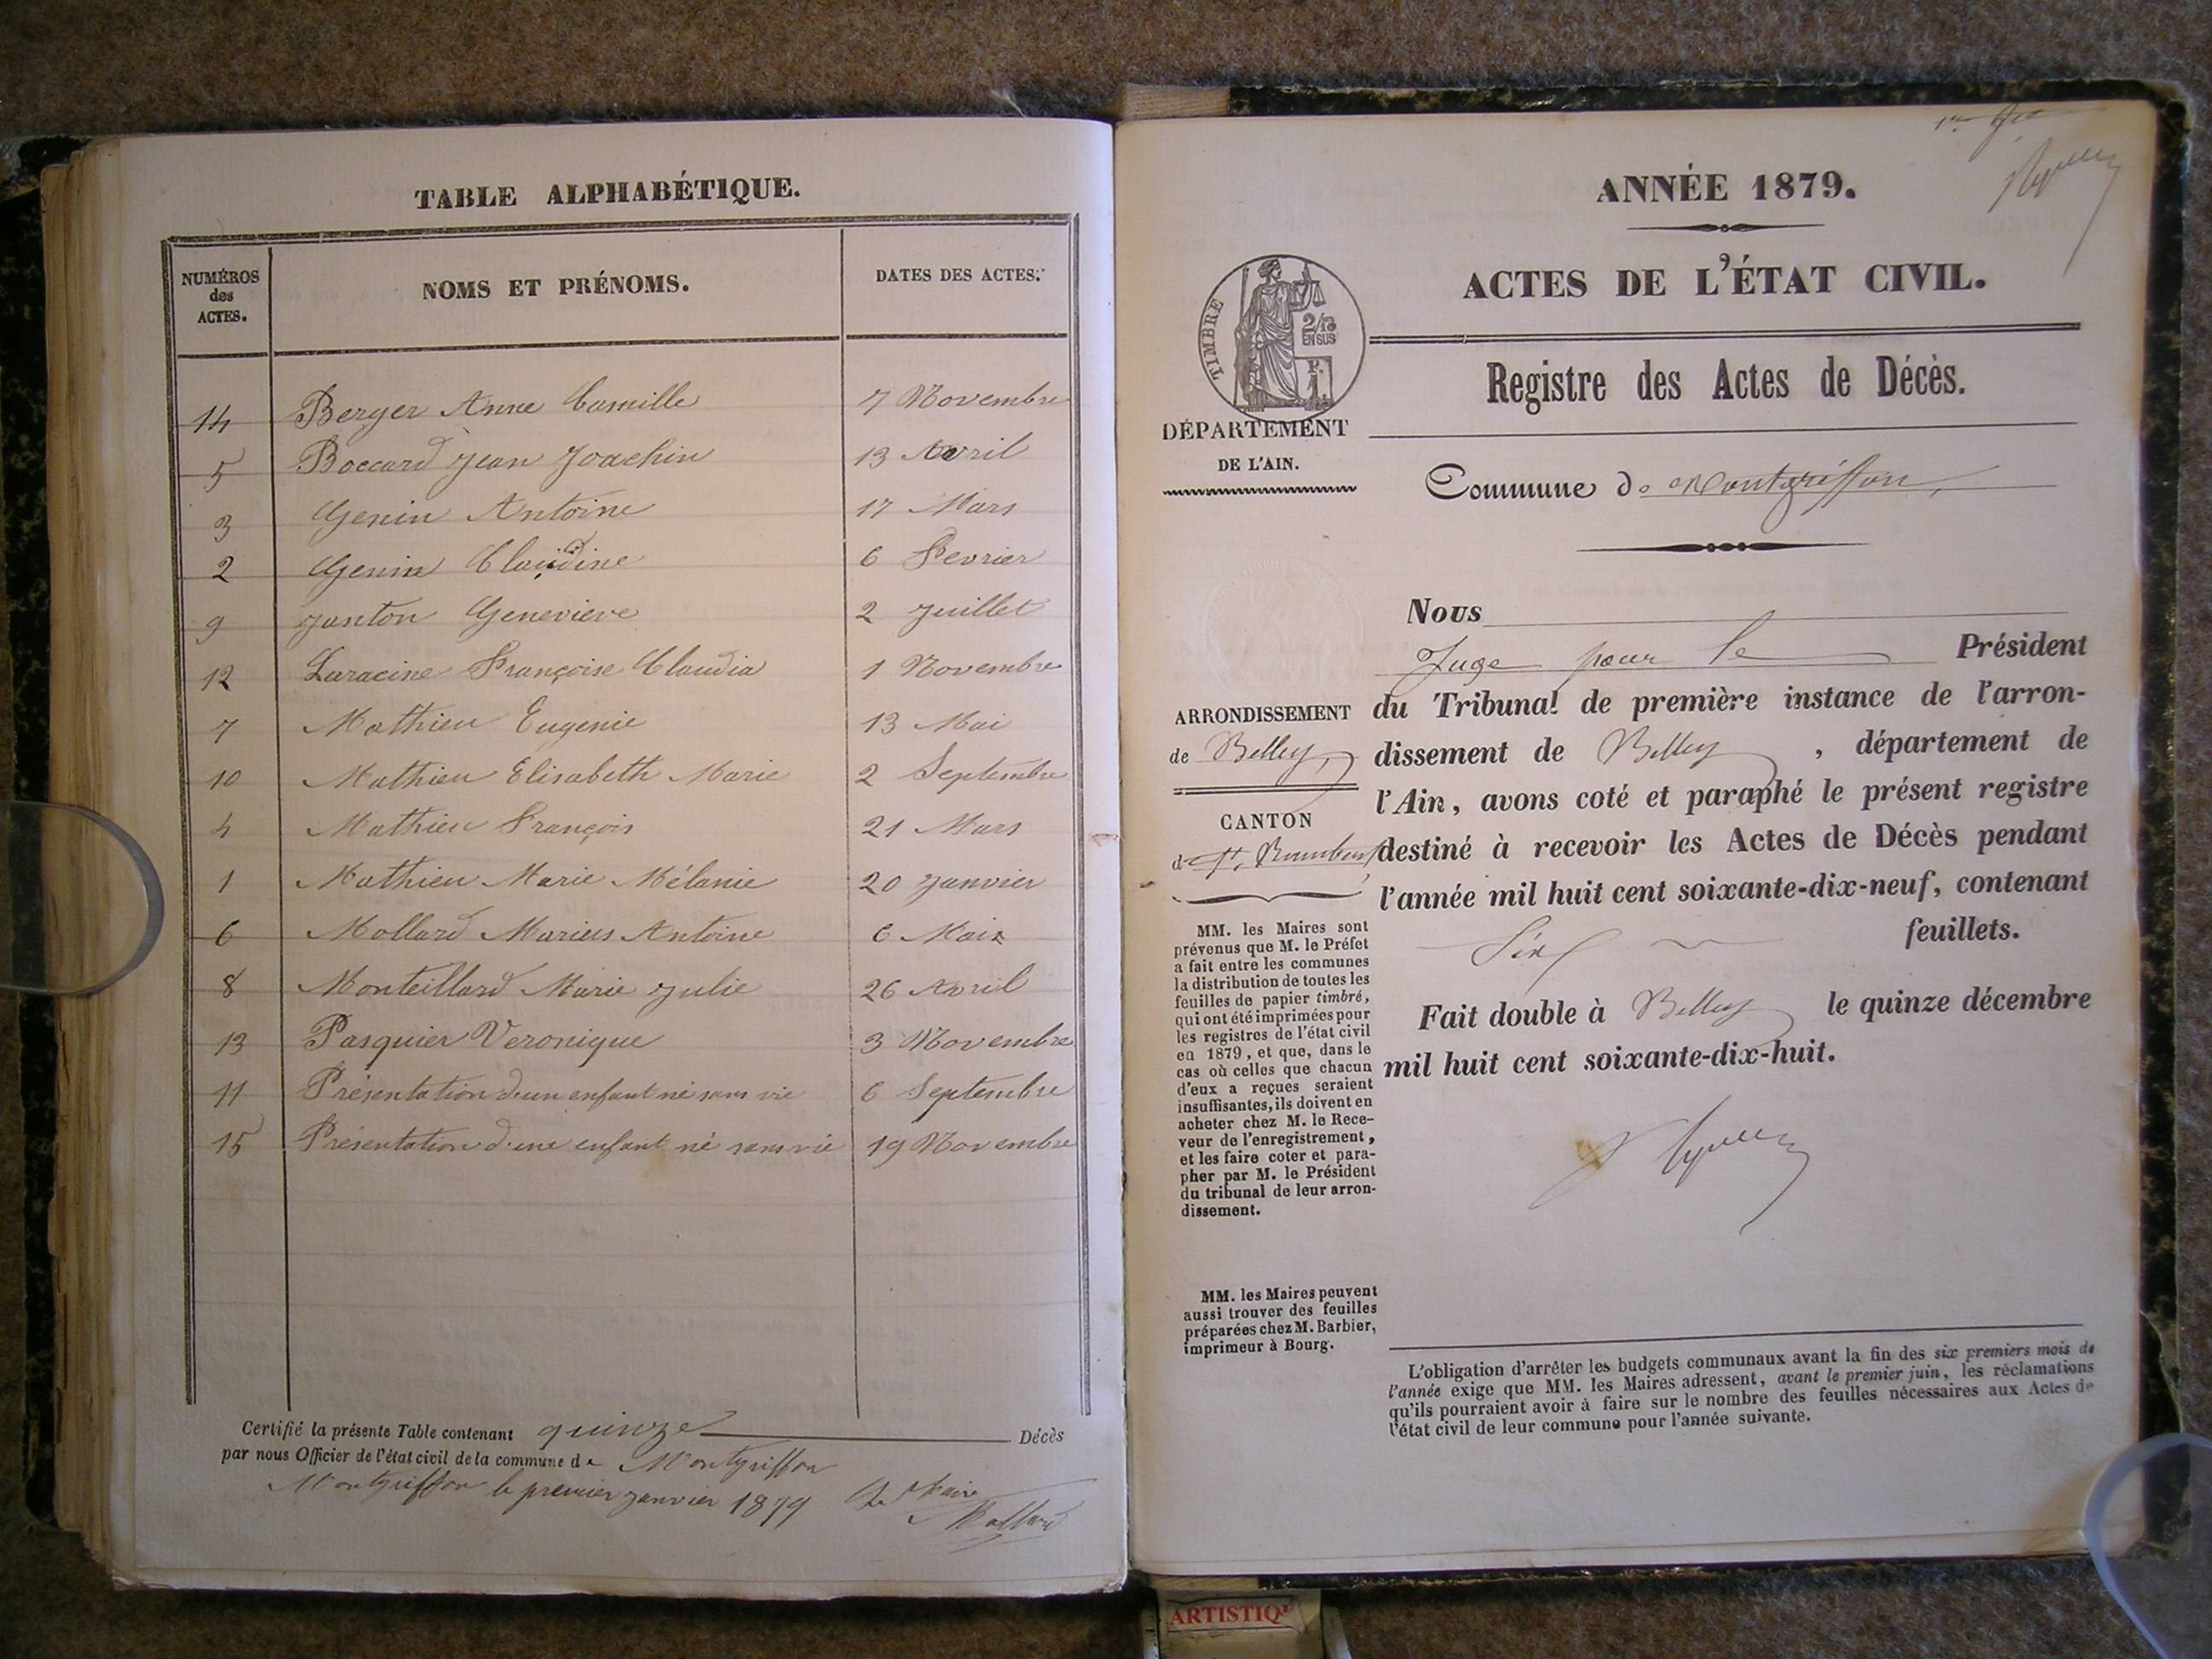 TABLE ALPHABÉTIQUE.
NUMÉROS des ACTES. NOMS ET PRÉNOMS. DATES DES ACTES.
14 Berger Anne Camille 7 Novembre
5 Boccard Jean Joachin 13 Avril
3 Genin Antoine 17 Mars
2 Genin Claudine 6 Fevrier
9 Janton Genevieve 2 Juillet
12 Laracine Françoise Claudia 1 Novembre
7 Mathieu Eugenie 13 Mai
10 Mathieu Elisabeth Marie 2 Septembre
4 Mathieu François 21 Mars
1 Mathieu Marie Mélanie 20 Janvier
6 Mollard Marius Antoine 6 Mai
8 Monteillard Marie Julie 26 Avril
13 Pasquier Veronique 3 Novembre
11 Présentation d'un enfant né sans vie 6 Septembre
15 Présentation d'une enfant né sans vie 19 Novembre
Certifié la présente Table contenant quinze Décès
par nous Officier de l'état civil de la commune de Montgriffon
Montgriffon le premier janvier 1879 Le Maire
Mollard
ANNÉE 1879.
ACTES DE L'ÉTAT CIVIL.
TIMBRE
2/10 EN SUS
Registre des Actes de Décès.
DÉPARTEMENT
DE L'AIN.
Commune de Montgriffon,
Nous
Juge pour le Président
du Tribunal de première instance de l'arron-
dissement de Belley, département de
l'Ain, avons coté et paraphé le présent registre
destiné à recevoir les Actes de Décès pendant
l'année mil huit cent soixante-dix-neuf, contenant
Six feuillets.
Fait double à Belley le quinze décembre
mil huit cent soixante-dix-huit.
ARRONDISSEMENT
de Belley,
CANTON
de St. Rambert,
MM. les Maires sont
prévenus que M. le Préfet
a fait entre les communes
la distribution de toutes les
feuilles de papier timbré,
qui ont été imprimées pour
les registres de l'état civil
en 1879, et que, dans le
cas où celles que chacun
d'eux a reçues seraient
insuffisantes, ils doivent en
acheter chez M. le Rece-
veur de l'enregistrement,
et les faire coter et para-
pher par M. le Président
du tribunal de leur arron-
dissement.
MM. les Maires peuvent
aussi trouver des feuilles
préparées chez M. Barbier,
imprimeur à Bourg.
L'obligation d'arrêter les budgets communaux avant la fin des six premiers mois de
l'année exige que MM. les Maires adressent, avant le premier juin, les réclamations
qu'ils pourraient avoir à faire sur le nombre des feuilles nécessaires aux Actes de
l'état civil de leur commune pour l'année suivante.
ARTISTIQ